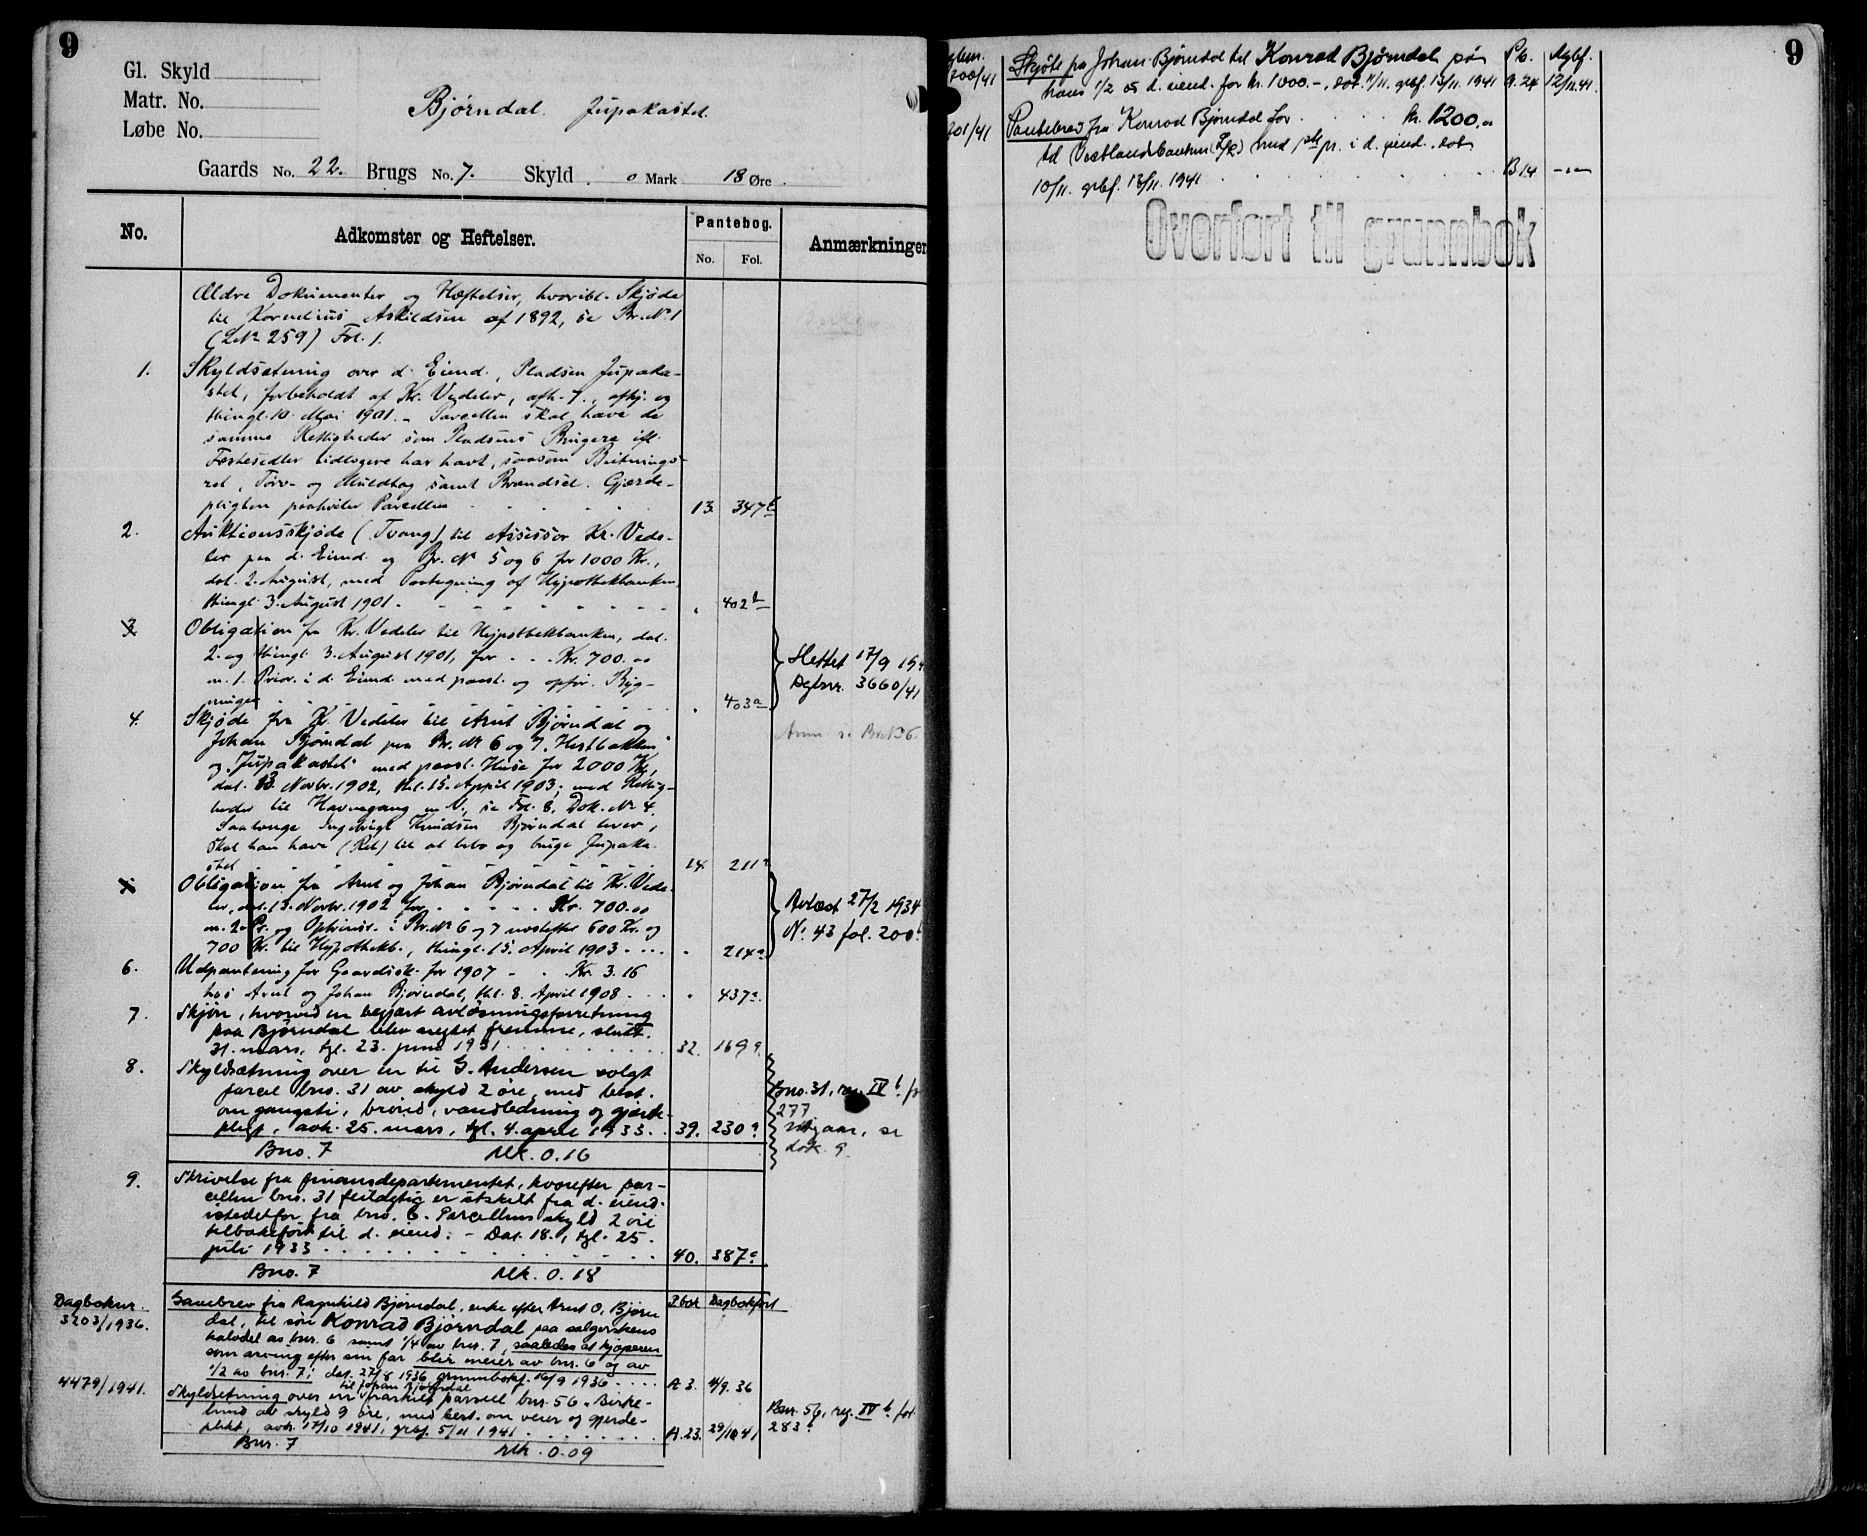 9
Gl. Skyld
Matr. No.
Løbe No.
Bjørndal. Jupakastel.
Gaards No. 22. Brugs No. 7. Skyld 0 Mark 18 Øre
No. Adkomster og Heftelser. Pantebog. No. Fol. Anmærkninger
Ældre Dokumenter og Hæftelser, hvoribl. Skjøde
til Kornelius Askildsen af 1892, se Br. No 1
(LNo 259) Fol. 1.
1. Skyldsætning over d. Eiend., Pladsen Jupaka-
stel, forbeholdt af Kr. Vedeler, afh. 7., afhj. og
thingl. 10. Mai 1901. - Parcellen skal have de
samme Rettigheder som Pladsens Brugere ifl.
Fæstesedler tidligere har havt, saasom Beitnings-
ret, Torv- og Muldtag samt Brændsel. Gjærde-
pligten paahviler Parcellen 13. 347b
2. Auktionsskjøde (Tvang) til Assessor Kr. Vede-
ler paa d. Eiend. og Br. No 5 og 6 for 1000 Kr.,
dat. 2. August, med Paategning af Hypothekbanken,
thingl. 3. August 1901. " 402b
3. Obligation fra Kr. Vedeler til Hypothekbanken, dat.
2. og thingl. 3. August 1901, for . . Kr. 700.00
m. 1. Prior. i d. Eiend. med paast. og opför. Byg-
ninger " 403a
Slettet 17/9 194
Dgbnr. 3660/41
4. Skjøde fra Kr. Vedeler til Arnt Bjørndal og
Johan Bjørndal paa Br. No 6 og 7 "Hestbakken"
og "Jupakastel" med paast. Huse for 2000 Kr,
dat. 13. Novbr. 1902, thl. 15. April 1903; med Rettig-
heder til Havnegang m. V., se Fol. 8, Dok. No 4.
Saalænge Ingebrigt Knudsen Bjørndal lever,
skal han have (Ret) til at bebo og bruge Jupaka-
stel 14 211a
Anm. se Br. No 6.
5. Obligation fra Arnt og Johan Bjørndal til Kr. Vede-
ler, dat. 13. Novbr. 1902 for . . . Kr. 700.00
m. 2. Pr. og Optrinsr. i Br. No 6 og 7 næstefter 600 Kr. og
700 Kr. til Hypothekb., thingl. 15. April 1903 . . . " 214a
Avlæst 27/2 1934
No. 43 fol. 200
6. Udpantning for Gaardisk. for 1907 - . Kr. 3.16
hos Arnt og Johan Bjørndal, thl. 8. April 1908 . . . " 437a
7. Skjøn, hvorved en begjært avløsningsforretning
paa Bjørndal blev negtet fremme, slutt.
31. mars, tgl. 23. juni 1931 . . . 32. 169a
8. Skyldsætning over en til G. Andersen solgt
parcel bno. 31 av skyld 2 øre, med best.
om gangsti, brönd, vandledning og gjerde-
pligt, avh. 25. mars, tgl. 4. april 1933 . . 39. 230a
Bno. 31, reg. IVb. fo
277
utgaar, se
dok. 9
Bno. 7 Mk. 0.16
9. Skrivelse fra finansdepartementet, hvorefter par-
cellen bno. 31 feilagtig er utskilt fra d. eiend.
istedetfor fra bno. 6. Parcellens skyld 2 öre
tilbakeført til d. eiend. - Dat. 18., tgl. 25.
juli 1933 . . . 40. 387a
Bno. 7 Mk. 0.18
Dagboknr.
3203/1936. Gavebrev fra Ragnhild Bjørndal, enke efter Arnt O. Bjørn P.bok Dagbokført
dal, til søn Konrad Bjørndal paa selgerskens
halvdel av bnr. 6 samt 1/4 av bnr. 7, saaledes at kjøperen
som arving efter sin far blir meier av bnr. 6 og av
1/2 av bnr. 7; dat. 27/8 1936 grunnbokf. 16/9 1936 . . . A 3. 4/9. 36
til Johan Bjørndal
4479/1941. Skyldsetning over en fraskilt parsell bnr. 56 „Birke-
lund" av skyld 9 öre, med best. om veier og gjerde-
plikt, avh. 17/10 1941, grbf. 5/11 1941 . . . A. 23. 29/10 41
Bnr. 56, reg. IVb. fol.
283b
Bnr. 7 Mk. 0.09
9
4700/41 Skjöte fra Johan Bjørndal til Konrad Bjørndal på Pb. Dgbf.
hans 1/2 av d. eiend. for kr. 1000.-, dat. 11/11. grbf. 13/11. 1941 A. 24 12/11.41.
4701/41 Pantebrev fra Konrad Bjørndal for . . . kr. 1200.00
til Vestlandsbanken (L/L) med 1ste pr. i d. eiend. dat.
10/11. grbf. 13/11. 1941 . . . B 14 -"-
Overført til grunnbok